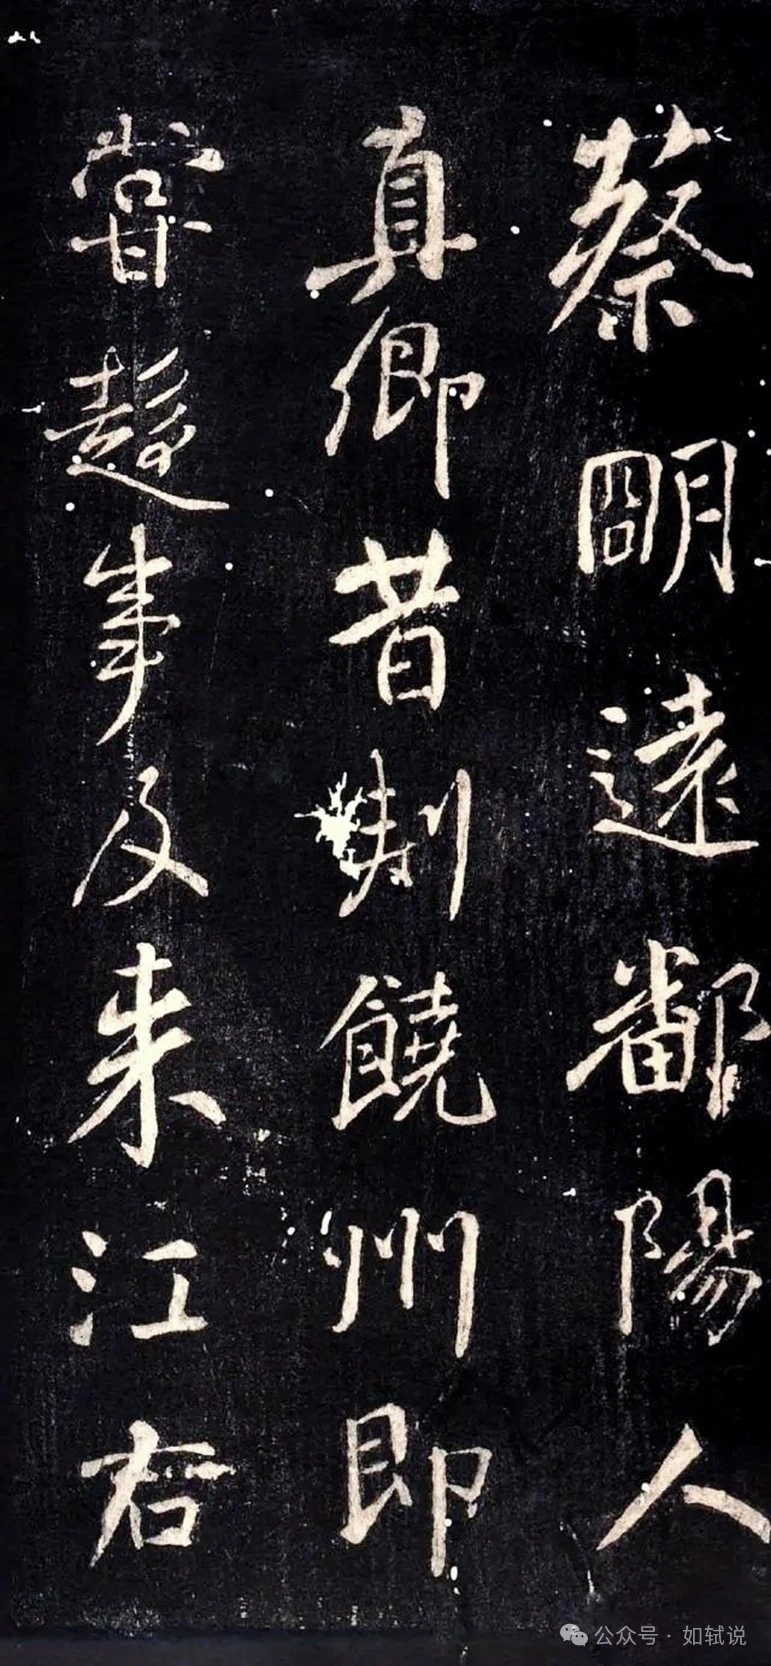 蔡明遠鄱陽人
真卿昔刺饒州即
嘗趨事及来江右
公众号·如轼说